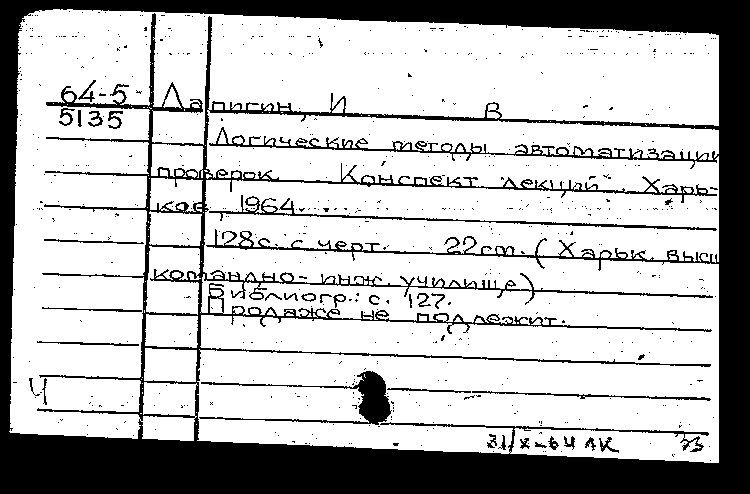 64-5 Лапигин, И В
5135
Логические методы автоматизации
проверок. Конспект лекций. Харь-
ков, 1964.
128с. с черт. 22см. (Харьк. высш
командно-инж. училище)
Библиогр.: с. 127.
Продаже не подлежит.
Ч
31/X-64 ЛК 33